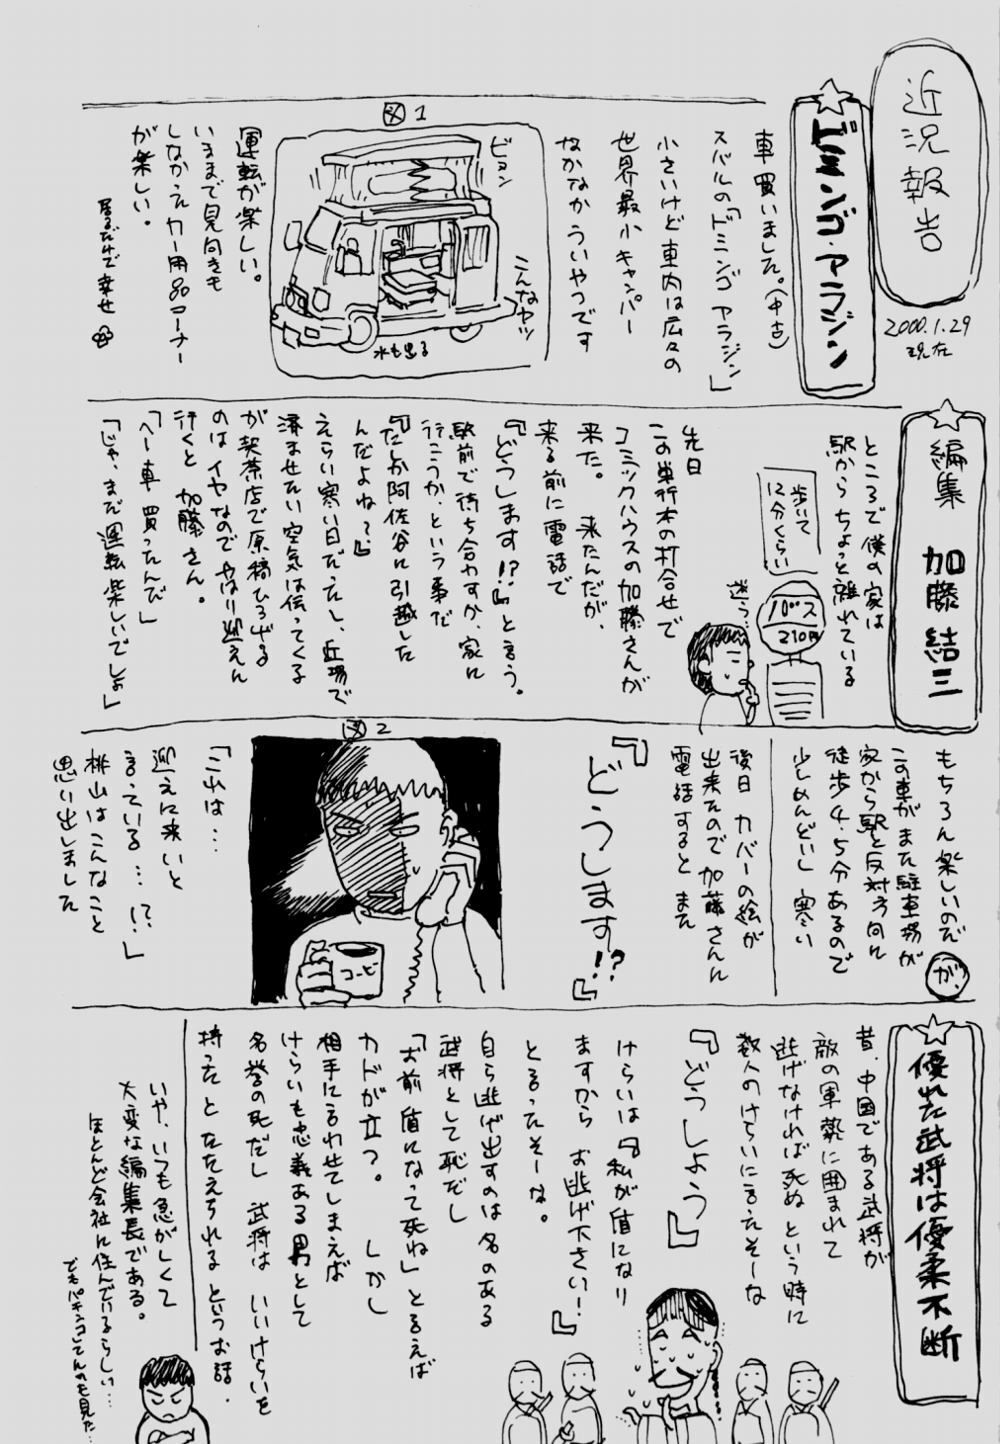 近況報告
2000.1.29
現在
ドミンゴ・アラジン
車買いました。(中古)
スバルの「ドミンゴ アラジン」
小さいけど車内は広々の
世界最小キャンパー
なかなかういやつです
図1
ビヨン
こんなヤツ
水も出る
運転が楽しい。
いままで見向きも
しなかったカー用品コーナー
が楽しい。
居るだけで幸せ
編集 加藤 結三
ところで僕の家は
駅からちょっと離れている
歩いて
12分くらい
バス
210円
迷う…
先日
この単行本の打合せで
コミックハウスの加藤さんが
来た。 来たんだが、
来る前に電話で
『どうします!?』と言う。
駅前で待ち合わすか、家に
行こうか、という事だ
『たしか阿佐谷に引越した
んだよね?』
えらい寒い日だったし、近場で
済ませたい空気は伝ってくる
が喫茶店で原稿ひろげる
のはイヤなのでやはり迎えに
行くと 加藤さん。
「へー車買ったんだ」
「じゃ、まだ運転楽しいでしょ」
もちろん楽しいのだ
が、
この車がまた駐車場が
家から駅と反対方向に
徒歩4.5分あるので
少しめんどいし 寒い
後日 カバーの絵が
出来たので加藤さんに
電話すると また
『どうします!?』
図2
コーヒ
「これは…
迎えに来いと
言っている…!?」
桃山はこんなこと
思い出しました
優れた武将は優柔不断
昔、中国である武将が
敵の軍勢に囲まれて
逃げなければ死ぬ という時に
数人のけらいに言ったそーな
『どうしよう』
けらいは『私が盾になり
ますから お逃げ下さい!』
と言ったそーな。
自ら逃げ出すのは名のある
武将として恥だし
「お前 盾になって死ね」と言えば
カドが立つ。 しかし
相手に言わせてしまえば
けらいも忠義ある男として
名誉の死だし 武将は いいけらいを
持った とたたえられる というお話.
いや、いつも急がしくて
大変な編集長である。
ほとんど会社に住んでいるらしい…
でもパチンコしてんのも見た…